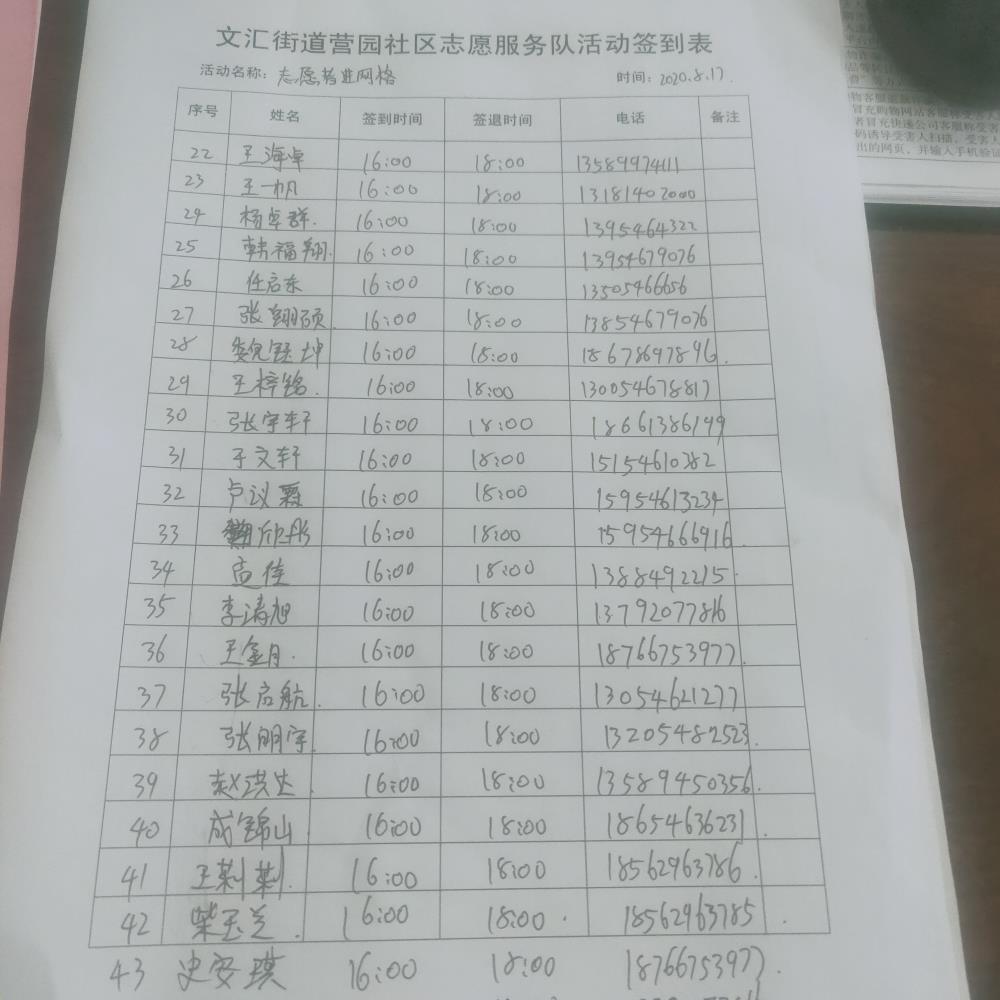 文汇街道营园社区志愿服务队活动签到表
活动名称：志愿者进网格 时间：2020.8.17.
序号 姓名 签到时间 签退时间 电话 备注
22 王海卓 16:00 18:00 13589974411
23 王一帆 16:00 18:00 13181402000
24 杨卓群. 16:00 18:00 1395464322
25 韩福翔. 16:00 18:00 13954679076
26 任启东 16:00 18:00 13505466656
27 张翔硕 16:00 18:00 13854679076
28 坤 16:00 18:00 18678697896.
29 王梓铭. 16:00 18:00 130054678817
30 张宇轩 16:00 18:00 18661386199
31 于文轩 16:00 18:00 15154610382
32 卢议霖 16:00 18:00 15954613234
33 欣彤 16:00 18:00 15954666916
34 孟佳 16:00 18:00 1388492215.
35 李清旭 16:00 18:00 13792077816
36 王金月. 16:00 18:00 18766753977.
37 张启航. 16:00 18:00 13054621277
38 张明宇. 16:00 18:00 13205482523.
39 赵洪 16:00 18:00 13589450356.
40 成锦山 16:00 18:00 18654636231.
41 王莉莉. 16:00 18:00 18562963786.
42 柴玉兰. 16:00 18:00. 18562963785.
43 史安琪 16:00 18:00 18766753977.